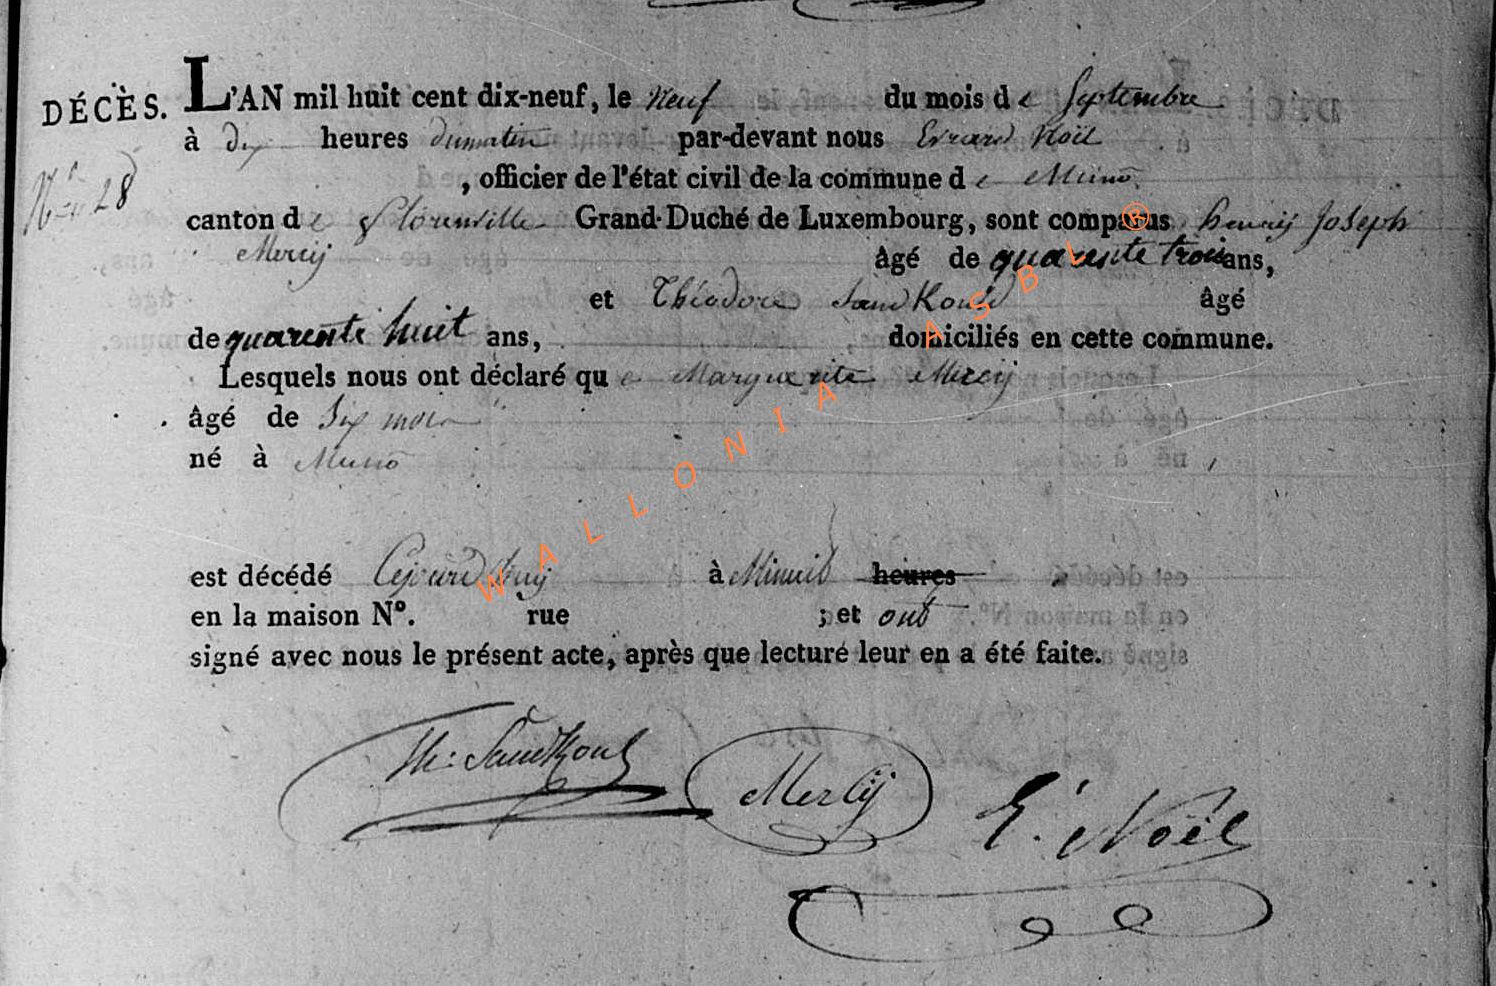 DÉCÈS. L'AN mil huit cent dix-neuf, le Neuf du mois d e Septembre
à dix heures dumatin par-devant nous Evrard Noël
N.º 28
, officier de l'état civil de la commune d e Muno
canton d e florenville Grand-Duché de Luxembourg, sont comparus henrÿ Joseph
Mercÿ âgé de quarente trois ans,
et Théodore Sandkoul âgé
de quarente huit ans, domiciliés en cette commune.
Lesquels nous ont déclaré qu e Marguerite Mercij
âgé de Six mois
né à Muno
est décédé Cejourd'huÿ à Minuit heures
en la maison Nº. rue ; et ont
signé avec nous le présent acte, après que lecture leur en a été faite.
Th: Sandkoul Mercÿ E. Noël
WALLONIA ASBL ®